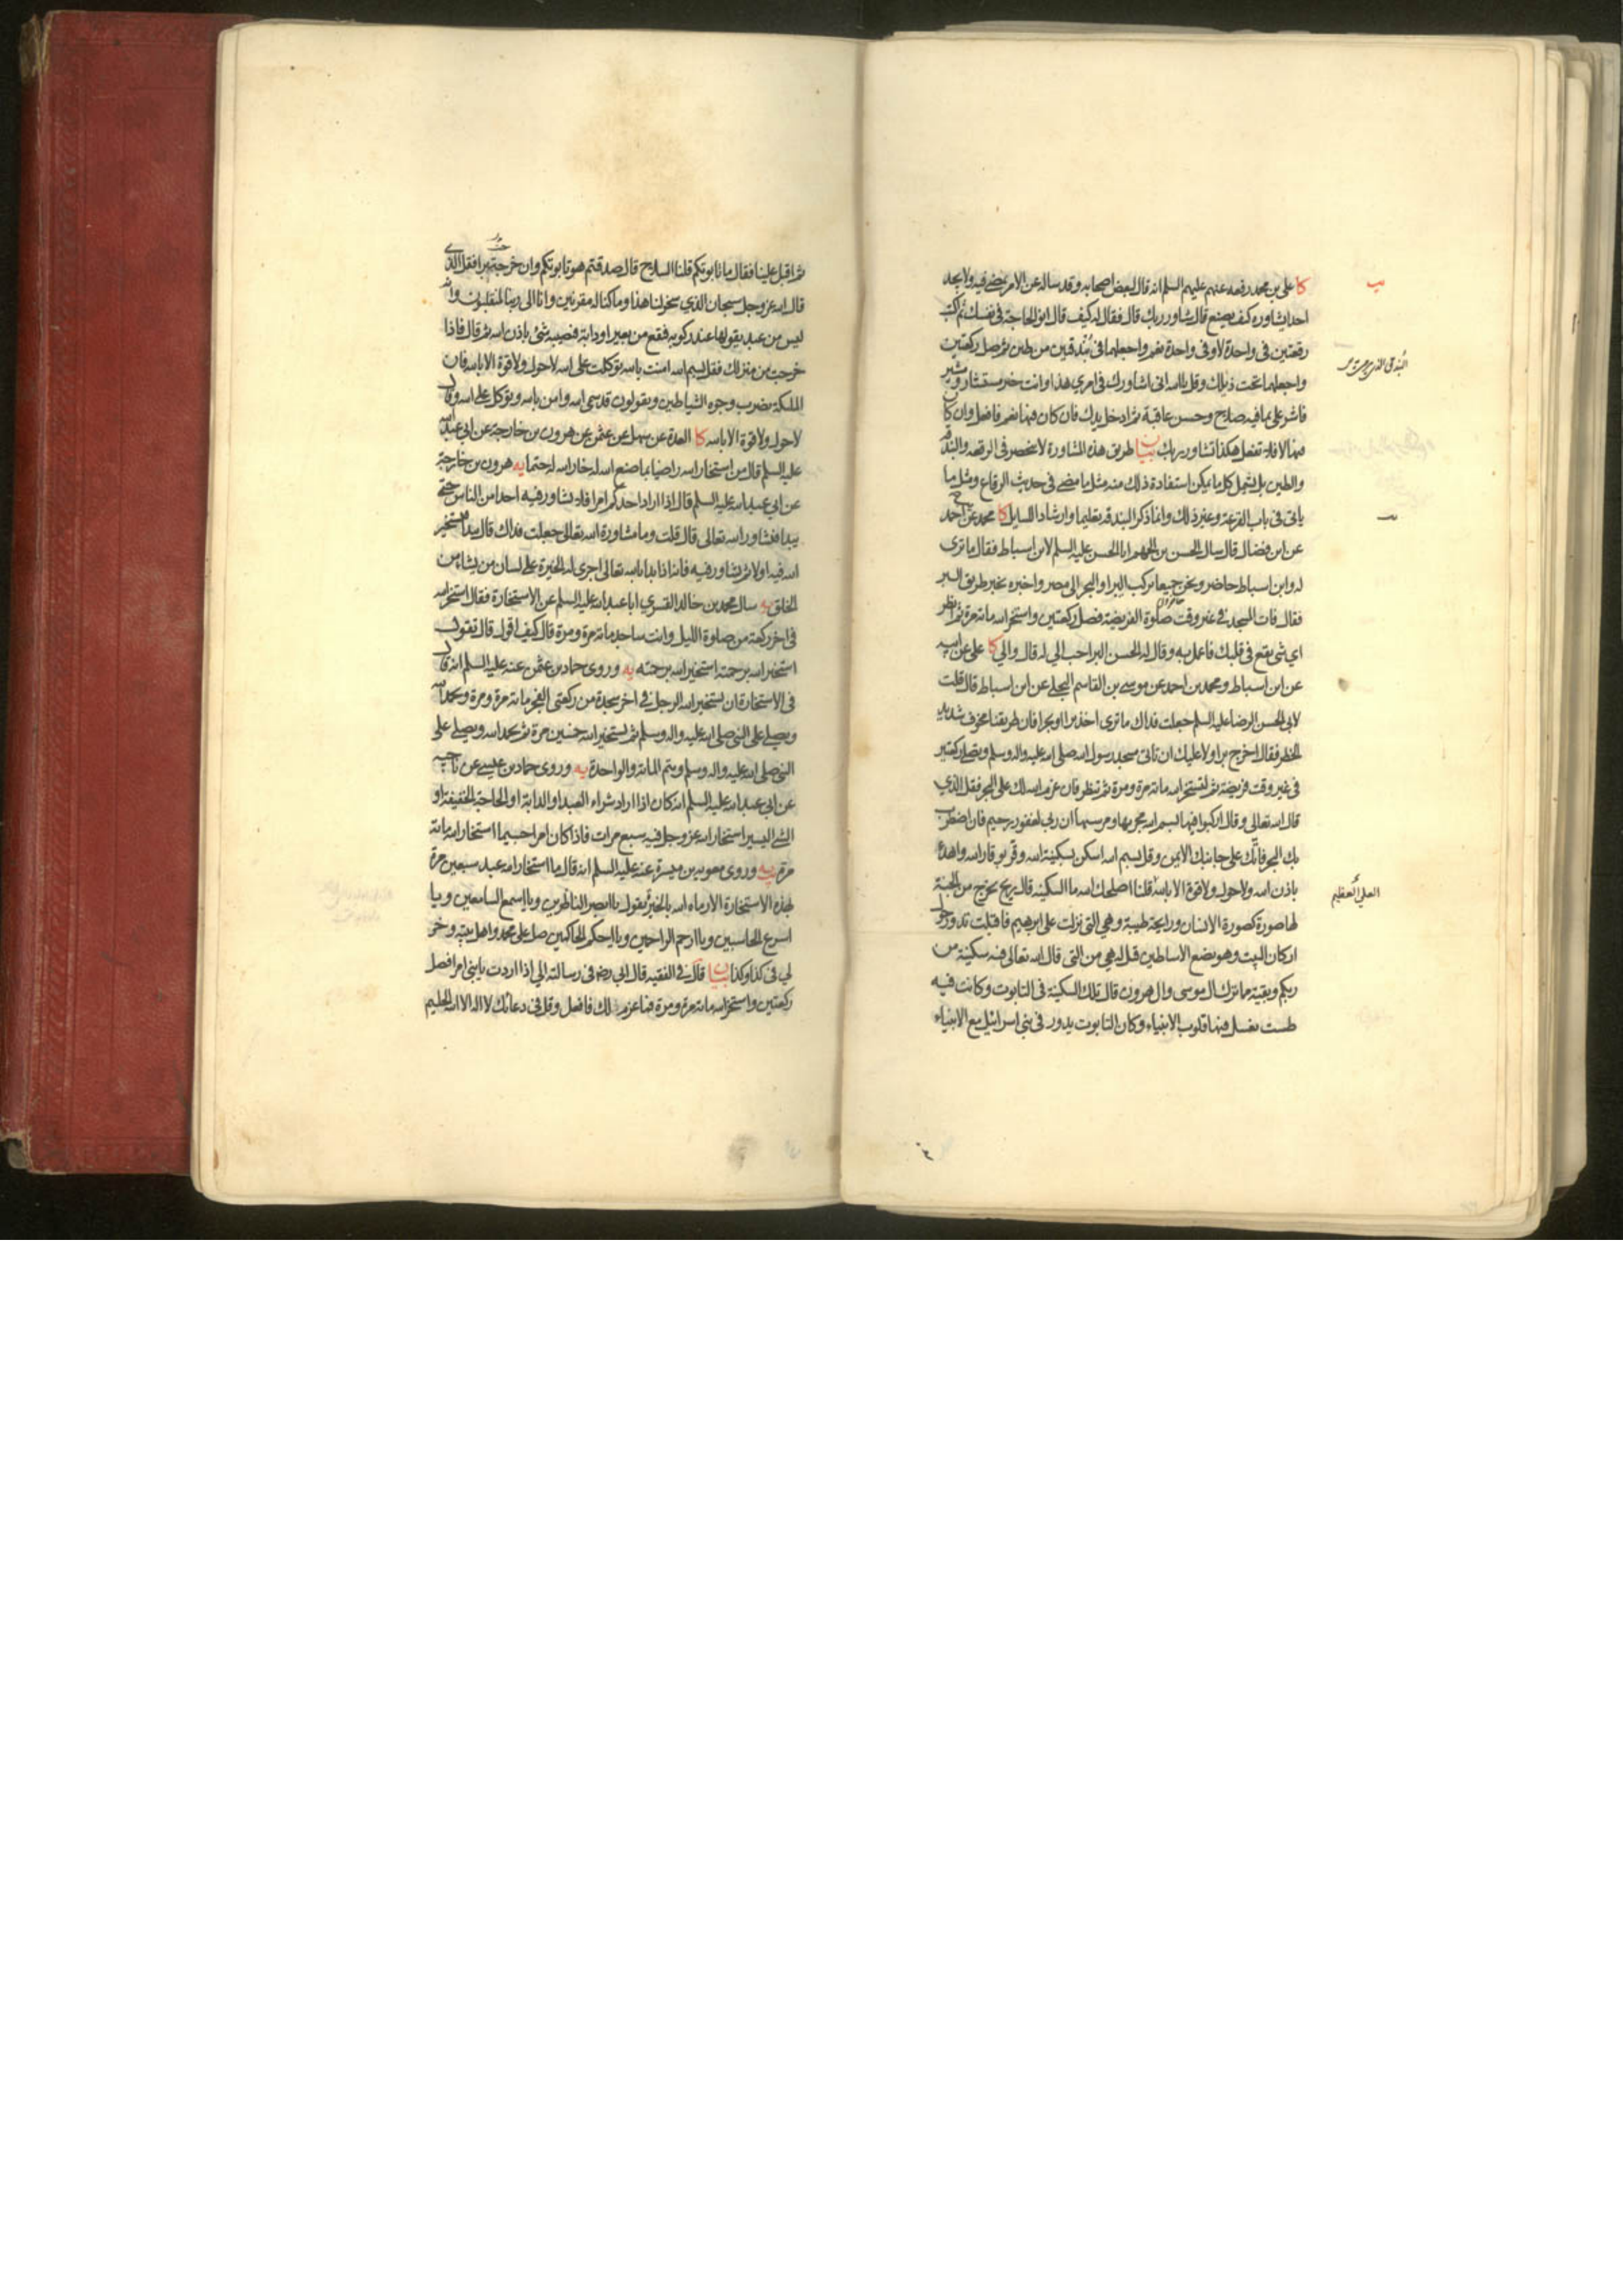 كا علي بن محمد رفعه عنهم عليهم السلم انه قال لبعض اصحابه وقد ساله عن الامر يمضي فيه ولا يجد
احدا يشاوره كيف يصنع قال شاور ربك قال فقال له كيف قال انو الحاجة في نفسك ثم اكتب
رقعتين في واحدة لا وفي واحدة نعم واجعلهما في بندقتين من طين ثم صل ركعتين
واجعلهما تحت ذيلك وقل يا الله اني اشاورك في امري هذا وانت خير مستشار ومشير
فاشر علي بما فيه صلاح وحسن عاقبة ثم ادخل يدك فان كان فيها نعم فافعل وان كان
فيها لا فلا تفعل هكذا تشاور ربك بيان طريق هذه المشاورة لا ينحصر في الرقعة والبندقة
والطين بل يشمل كل ما يمكن استفادة ذلك منه مثل ما مضى في حديث الرقاع ومثل ما
ياتي في باب القرعة وغير ذلك وانما ذكر البندقة تعليما وارشادا للسايل كا محمد عن احمد
عن ابن فضال قال سال الحسن بن الجهم ابا الحسن عليه السلم لابن اسباط فقال ما ترى
له وابن اسباط حاضر ونحن جميعا نركب البر او البحر الى مصر واخبره بخير طريق البر
فقال فات المسجد في غير وقت صلوة الفريضة فصل ركعتين واستخر الله مائة مرة ثم انظر
اي شي يقع في قلبك فاعمل به وقال له الحسن البر احب الي له قال والي كا علي عن ابيه
عن ابن اسباط ومحمد بن احمد عن موسى بن القاسم البجلي عن ابن اسباط قال قلت
لابي الحسن الرضا عليه السلم جعلت فداك ما ترى اخذ برا او بحرا فان طريقنا مخوف شديد
الخطر فقال اخرج برا ولا عليك ان تاتي مسجد رسول الله صلى الله عليه واله وسلم وتصلي ركعتين
في غير وقت فريضة ثم لتستخر الله مائة مرة ومرة ثم تنظر فان عزم الله لك على البحر فقل الذي
قال الله تعالى وقال اركبوا فيها بسم الله مجريها ومرسيها ان ربي لغفور رحيم فان اضطرب
بك البحر فاتك على جانبك الايمن وقل بسم الله اسكن بسكينة الله وقر بوقار الله واهدأ
باذن الله ولا حول ولا قوة الا بالله قلنا اصلحك الله ما السكينة قال ريح يخرج من الجنة
العلي العظيم
لها صورة كصورة الانسان ورايحة طيبة وهي التي نزلت على ابرهيم فاقبلت تدور حول
اركان البيت وهو يضع الاساطين قيل له هي من التي قال الله تعالى فيه سكينة من
ربكم وبقية مما ترك ال موسى وال هرون قال تلك السكينة في التابوت وكانت فيه
طست تغسل فيها قلوب الانبياء وكان التابوت يدور في بني اسرائيل مع الانبياء
ثم اقبل علينا فقال ما تابوتكم قلنا السلاح قال صدقتم هو تابوتكم وان خرجت برا فقل الذي
قال الله عز وجل سبحان الذي سخر لنا هذا وما كنا له مقرنين وانا الى ربنا لمنقلبون وانه
ليس من عبد يقولها عند ركوبه فيقع من بعير او دابة فيصيبه شئ باذن الله ثم قال فاذا
خرجت من منزلك فقل بسم الله امنت بالله توكلت على الله لا حول ولا قوة الا بالله فان
الملئكة يضرب وجوه الشياطين ويقولون قد سمى الله وامن بالله وتوكل على الله وقال
لا حول ولا قوة الا بالله كا العدة عن سهل عن عثمن عن هرون بن خارجة عن ابي عبد الله
عليه السلم قال من استخار الله راضيا بما صنع الله له خار الله له حتما يه هرون بن خارجة
عن ابي عبد الله عليه السلم قال اذا اراد احدكم امرا فلا يشاور فيه احدا من الناس حتى
يبدا فيشاور الله تعالى قال قلت وما مشاورة الله تعالى جعلت فداك قال يبدا فيستخير
الله فيه اولا ثم يشاور فيه فانه اذا بدا بالله تعالى اجرى له الخيرة على لسان من يشاء من
الخلق يه سال محمد بن خالد القسري ابا عبد الله عليه السلم عن الاستخارة فقال استخر الله
في اخر ركعة من صلوة الليل وانت ساجد مائة مرة ومرة قال كيف اقول قال تقول
استخير الله برحمته استخير الله برحمته يه وروى حماد بن عثمن عنه عليه السلم انه قال
في الاستخارة ان يستخير الله الرجل في اخر سجدة من ركعتي الفجر مائة مرة ومرة ويحمد الله
ويصلي على النبي صلى الله عليه واله وسلم ثم يستخير الله خمسين مرة ثم يحمد الله ويصلي على
النبي صلى الله عليه واله وسلم ويتم المائة والواحدة يه وروى حماد بن عيسى عن ناجية
عن ابي عبد الله عليه السلم انه كان اذا اراد شراء العبد او الدابة او الحاجة الخفيفة او
الشئ اليسير استخار الله عز وجل فيه سبع مرات فاذا كان امرا جسيما استخار الله مائة
مرة يه وروى معوية بن ميسرة عنه عليه السلم انه قال ما استخار الله عبد سبعين مرة
بهذه الاستخارة الا رماه الله بالخير يقول يا ابصر الناظرين ويا اسمع السامعين ويا
اسرع الحاسبين ويا ارحم الراحمين ويا احكم الحاكمين صل على محمد واهل بيته وخر
لي في كذا وكذا بيان قال في الفقيه قال ابي رضه في رسالته الي اذا اردت يا بني امرا فصل
ركعتين واستخر الله مائة مرة ومرة فما عزم لك فافعل وقل في دعائك لا اله الا الله الحليم